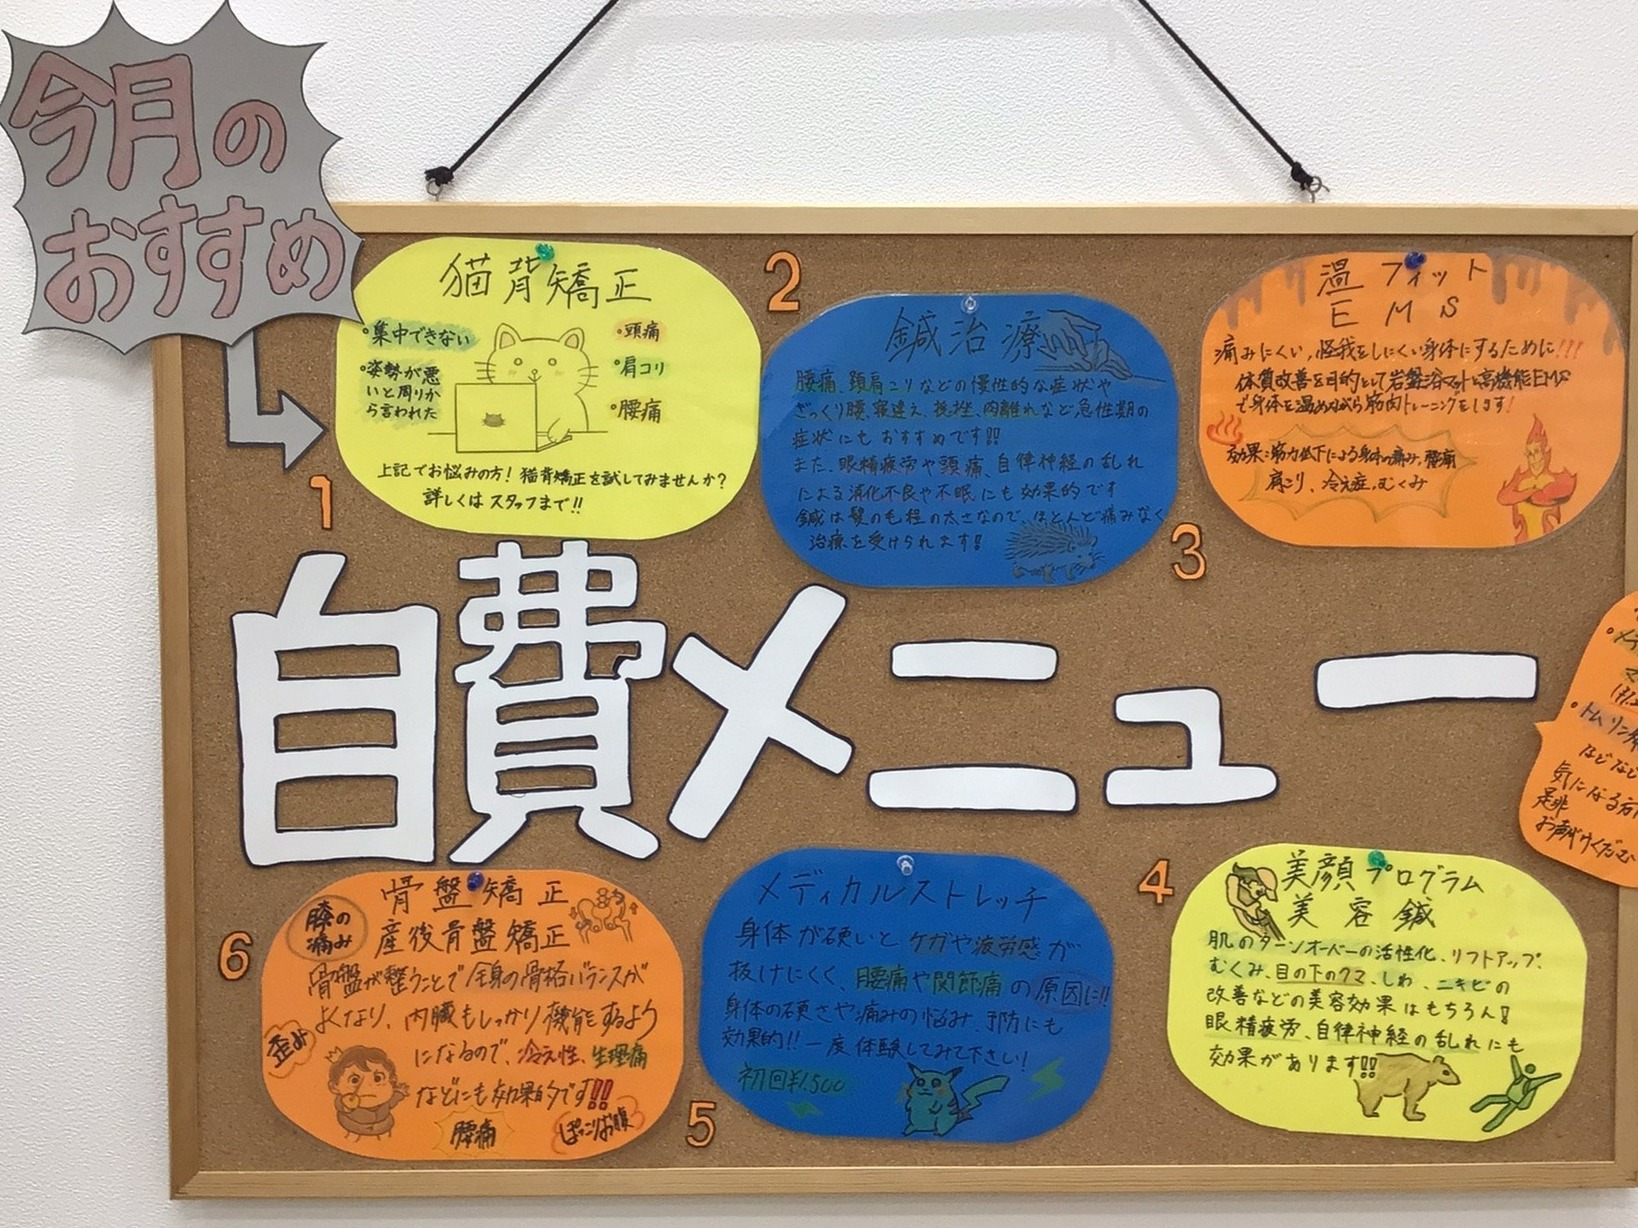 今月の
おすすめ
1
猫背矯正
・集中できない
・姿勢が悪
いと周りか
ら言われた
・頭痛
・肩コリ
・腰痛
上記でお悩みの方！猫背矯正を試してみませんか？
詳しくはスタッフまで!!
2
鍼治療
腰痛、頚肩こりなどの慢性的な症状や
ぎっくり腰、寝違え、捻挫、肉離れなど急性期の
症状にもおすすめです!!
また、眼精疲労や頭痛、自律神経の乱れ
による消化不良や不眠にも効果的です
鍼は髪の毛程の太さなので、ほとんど痛みなく
治療を受けられます!
3
温フィット
EMS
痛みにくい,怪我をしにくい身体にするために!!!
体質改善を目的として岩盤浴マットと高機能EMS
で身体を温めながら筋肉トレーニングをします!
効果:筋力低下による身体の痛み,腰痛
肩こり、冷え症,むくみ
自費メニュー
トムソン
などなど
気になる方
是非
お声がけくださ
4
美顔プログラム
美容鍼
肌のターンオーバーの活性化、リフトアップ、
むくみ、目の下のクマ、しわ、ニキビの
改善などの美容効果はもちろん!
眼精疲労、自律神経の乱れにも
効果があります!!
5
メディカルストレッチ
身体が硬いとケガや疲労感が
抜けにくく、腰痛や関節痛の原因に!!
身体の硬さや痛みの悩み、予防にも
効果的!!一度体験してみて下さい!
初回¥1,500
6
骨盤矯正
産後骨盤矯正
膝の
痛み
骨盤が整うことで全身の骨格バランスが
よくなり、内臓もしっかり機能するよう
になるので、冷え性、生理痛
などにも効果的です!!
歪み
腰痛
ぽっこりお腹